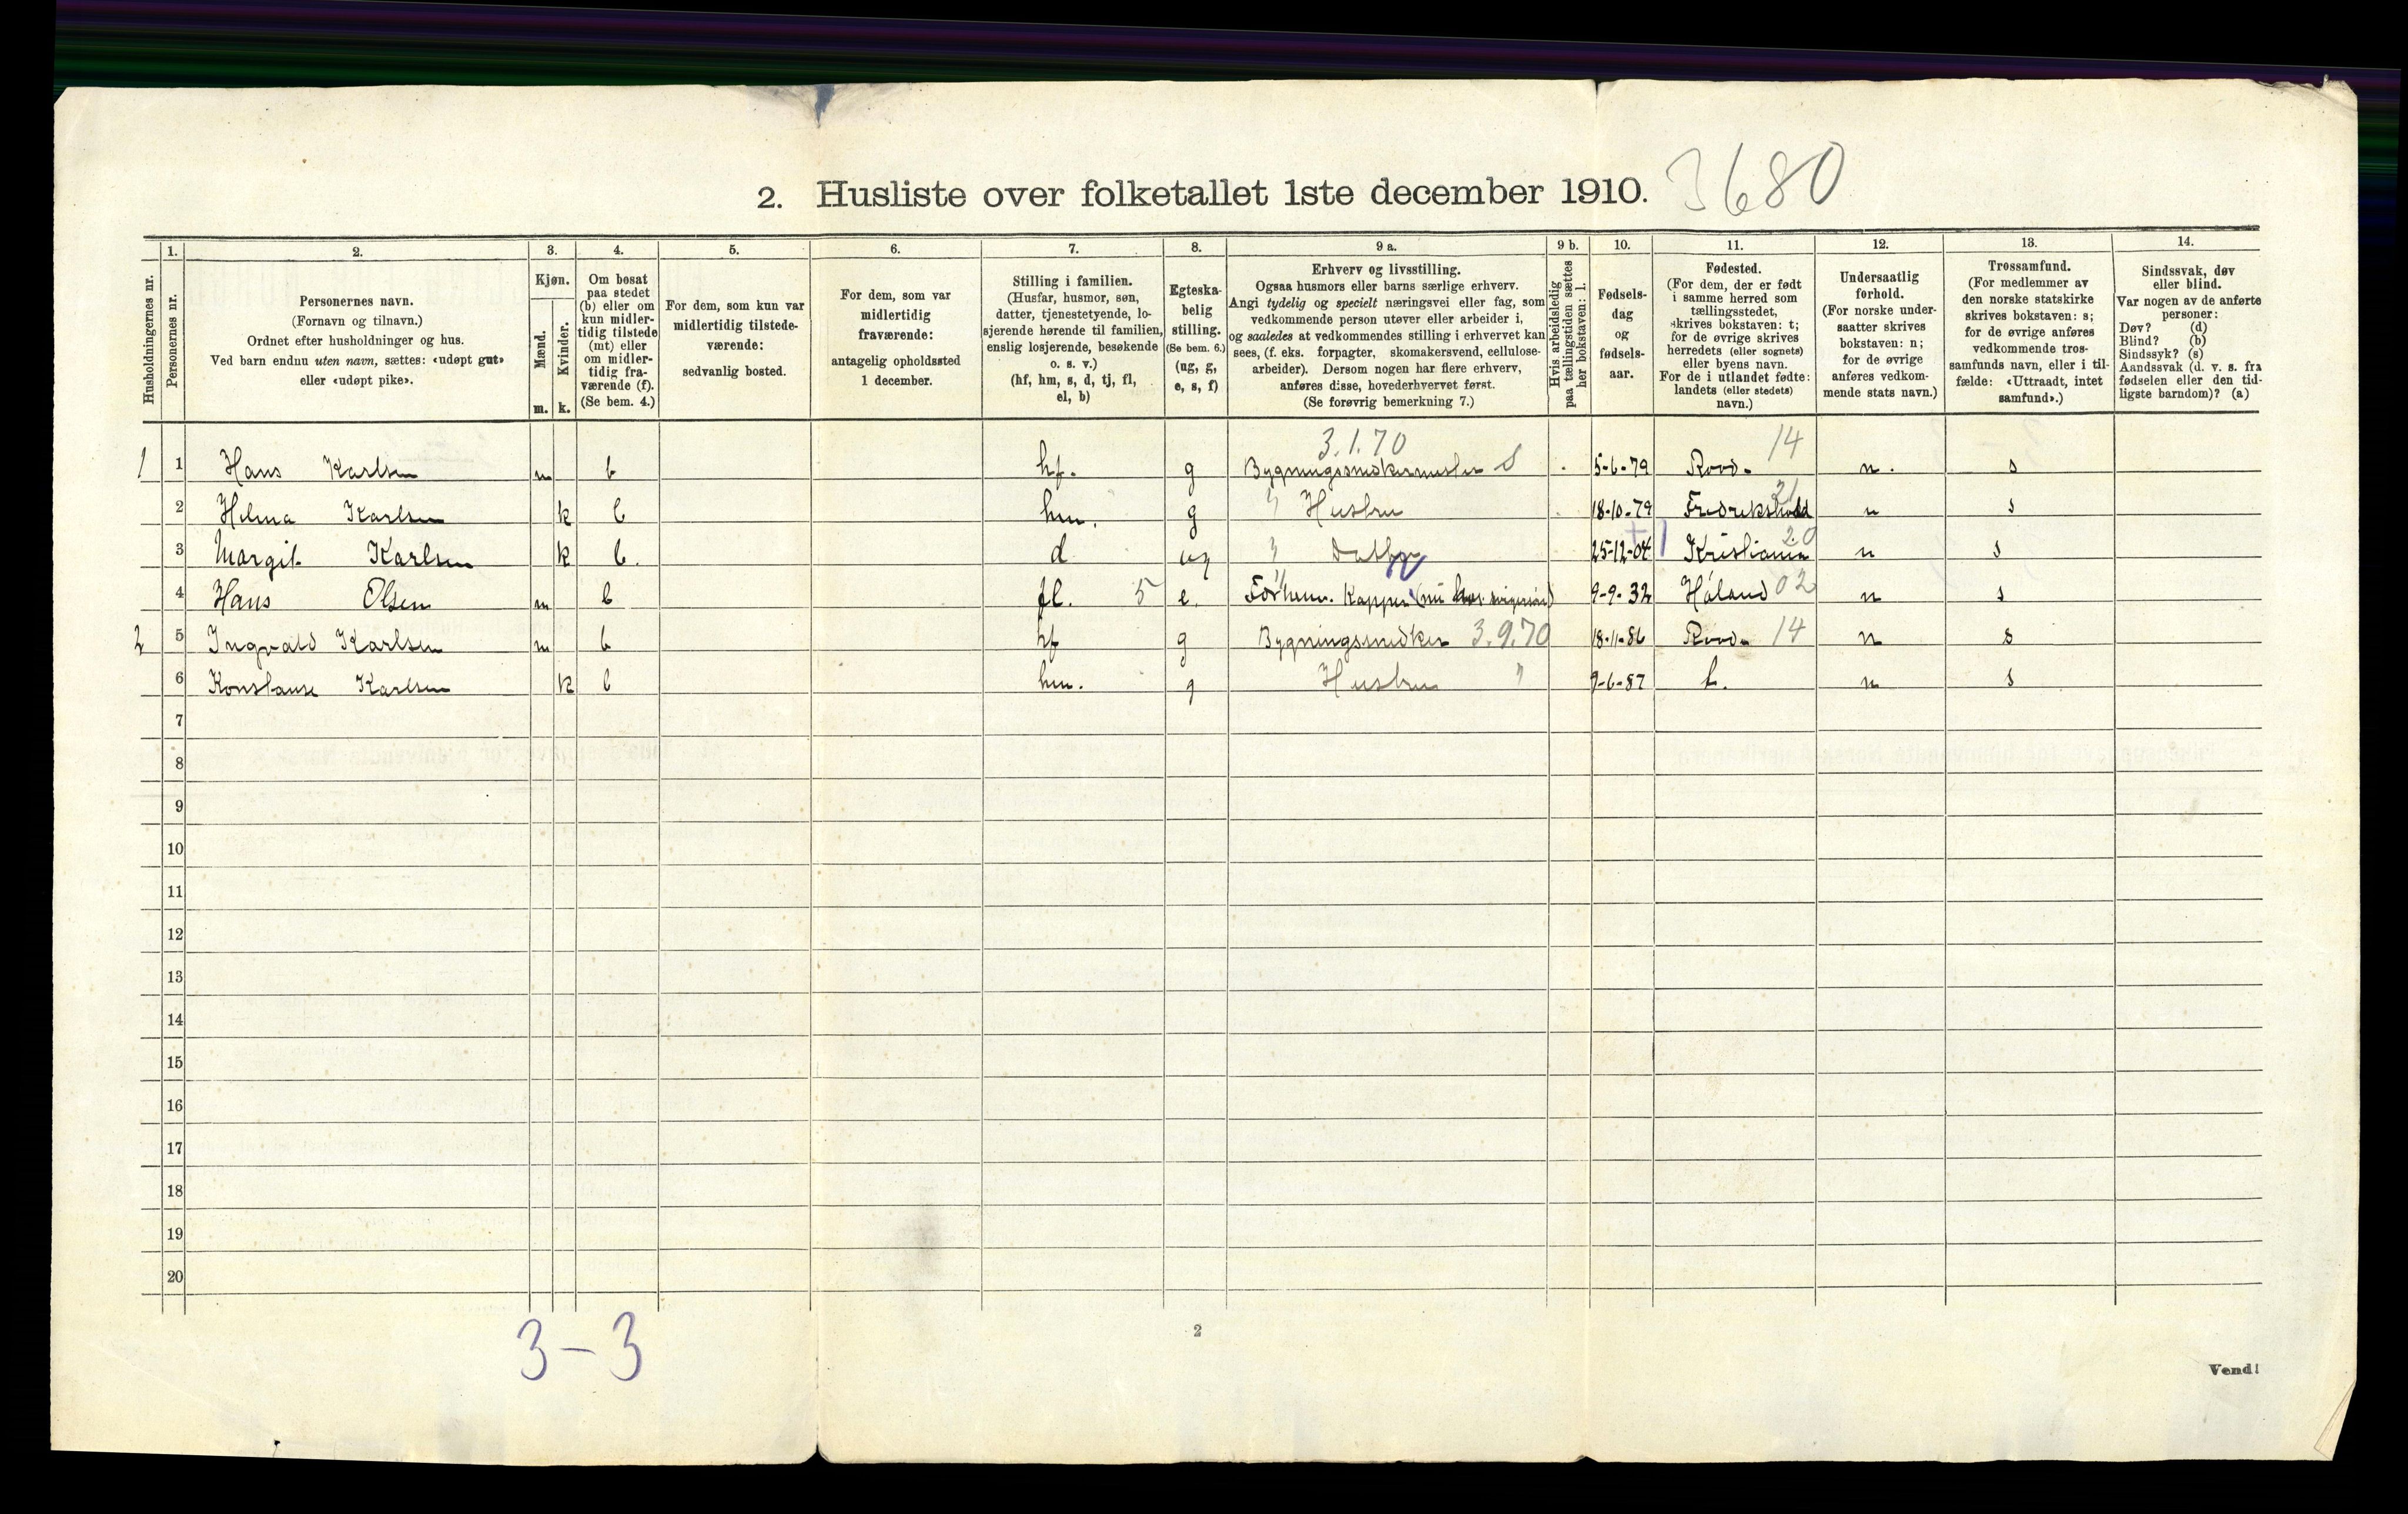 2. Husliste over folketallet 1ste december 1910. 3680
Husholdningernes nr.
1. Personernes nr.
2. Personernes navn.
(Fornavn og tilnavn.)
Ordnet efter husholdninger og hus.
Ved barn endnu uten navn, sættes: «udøpt gut»
eller «udøpt pike».
3. Kjøn.
Mænd. m.
Kvinder. k.
4. Om bosat
paa stedet
(b) eller om
kun midler-
tidig tilstede
(mt) eller
om midler-
tidig fra-
værende (f).
(Se bem. 4.)
5. For dem, som kun var
midlertidig tilstede-
værende:
sedvanlig bosted.
6. For dem, som var
midlertidig
fraværende:
antagelig opholdssted
1 december.
7. Stilling i familien.
(Husfar, husmor, søn,
datter, tjenestetyende, lo-
sjerende hørende til familien,
enslig losjerende, besøkende
o. s. v.)
(hf, hm, s, d, tj, fl,
el, b)
8. Egteska-
belig
stilling.
(Se bem. 6.)
(ug, g,
e, s, f)
9 a. Erhverv og livsstilling.
Ogsaa husmors eller barns særlige erhverv.
Angi tydelig og specielt næringsvei eller fag, som
vedkommende person utøver eller arbeider i,
og saaledes at vedkommendes stilling i erhvervet kan
sees, (f. eks. forpagter, skomakersvend, cellulose-
arbeider). Dersom nogen har flere erhverv,
anføres disse, hovederhvervet først.
(Se forøvrig bemerkning 7.)
9 b. Hvis arbeidsledig
paa tællingstiden sættes
her bokstaven: l.
10. Fødsels-
dag
og
fødsels-
aar.
11. Fødested.
(For dem, der er født
i samme herred som
tællingsstedet,
skrives bokstaven: t;
for de øvrige skrives
herredets (eller sognets)
eller byens navn.
For de i utlandet fødte:
landets (eller stedets)
navn.)
12. Undersaatlig
forhold.
(For norske under-
saatter skrives
bokstaven: n;
for de øvrige
anføres vedkom-
mende stats navn.)
13. Trossamfund.
(For medlemmer av
den norske statskirke
skrives bokstaven: s;
for de øvrige anføres
vedkommende tros-
samfunds navn, eller i til-
fælde: «Uttraadt, intet
samfund».)
14. Sindssvak, døv
eller blind.
Var nogen av de anførte
personer:
Døv? (d)
Blind? (b)
Sindssyk? (s)
Aandssvak (d. v. s. fra
fødselen eller den tid-
ligste barndom)? (a)
3.1.70 14
1 1 Hans Karlsen m b hf. g Bygningssnedkermester S 5-6-79 n. s
2 Helma Karlsen k b hm. g " Hustru 18-10-79 Fredrikshald 21 n s
3 Margit Karlsen k b. d ug " Datter 25-12-04 Kristiania 20 n s
4 Hans Olsen m b fl. 5 e. 9-9-32 Høland 02 n s
2 5 Ingvald Karlsen m b hf g Bygningssnedker 3.9.70 18-11-86 14 n s
6 Konstanse Karlsen k b hm. g Hustru " 9-6-87 t. n s
7
8
9
10
11
12
13
14
15
16
17
18
19
20
3-3
2
Vend!